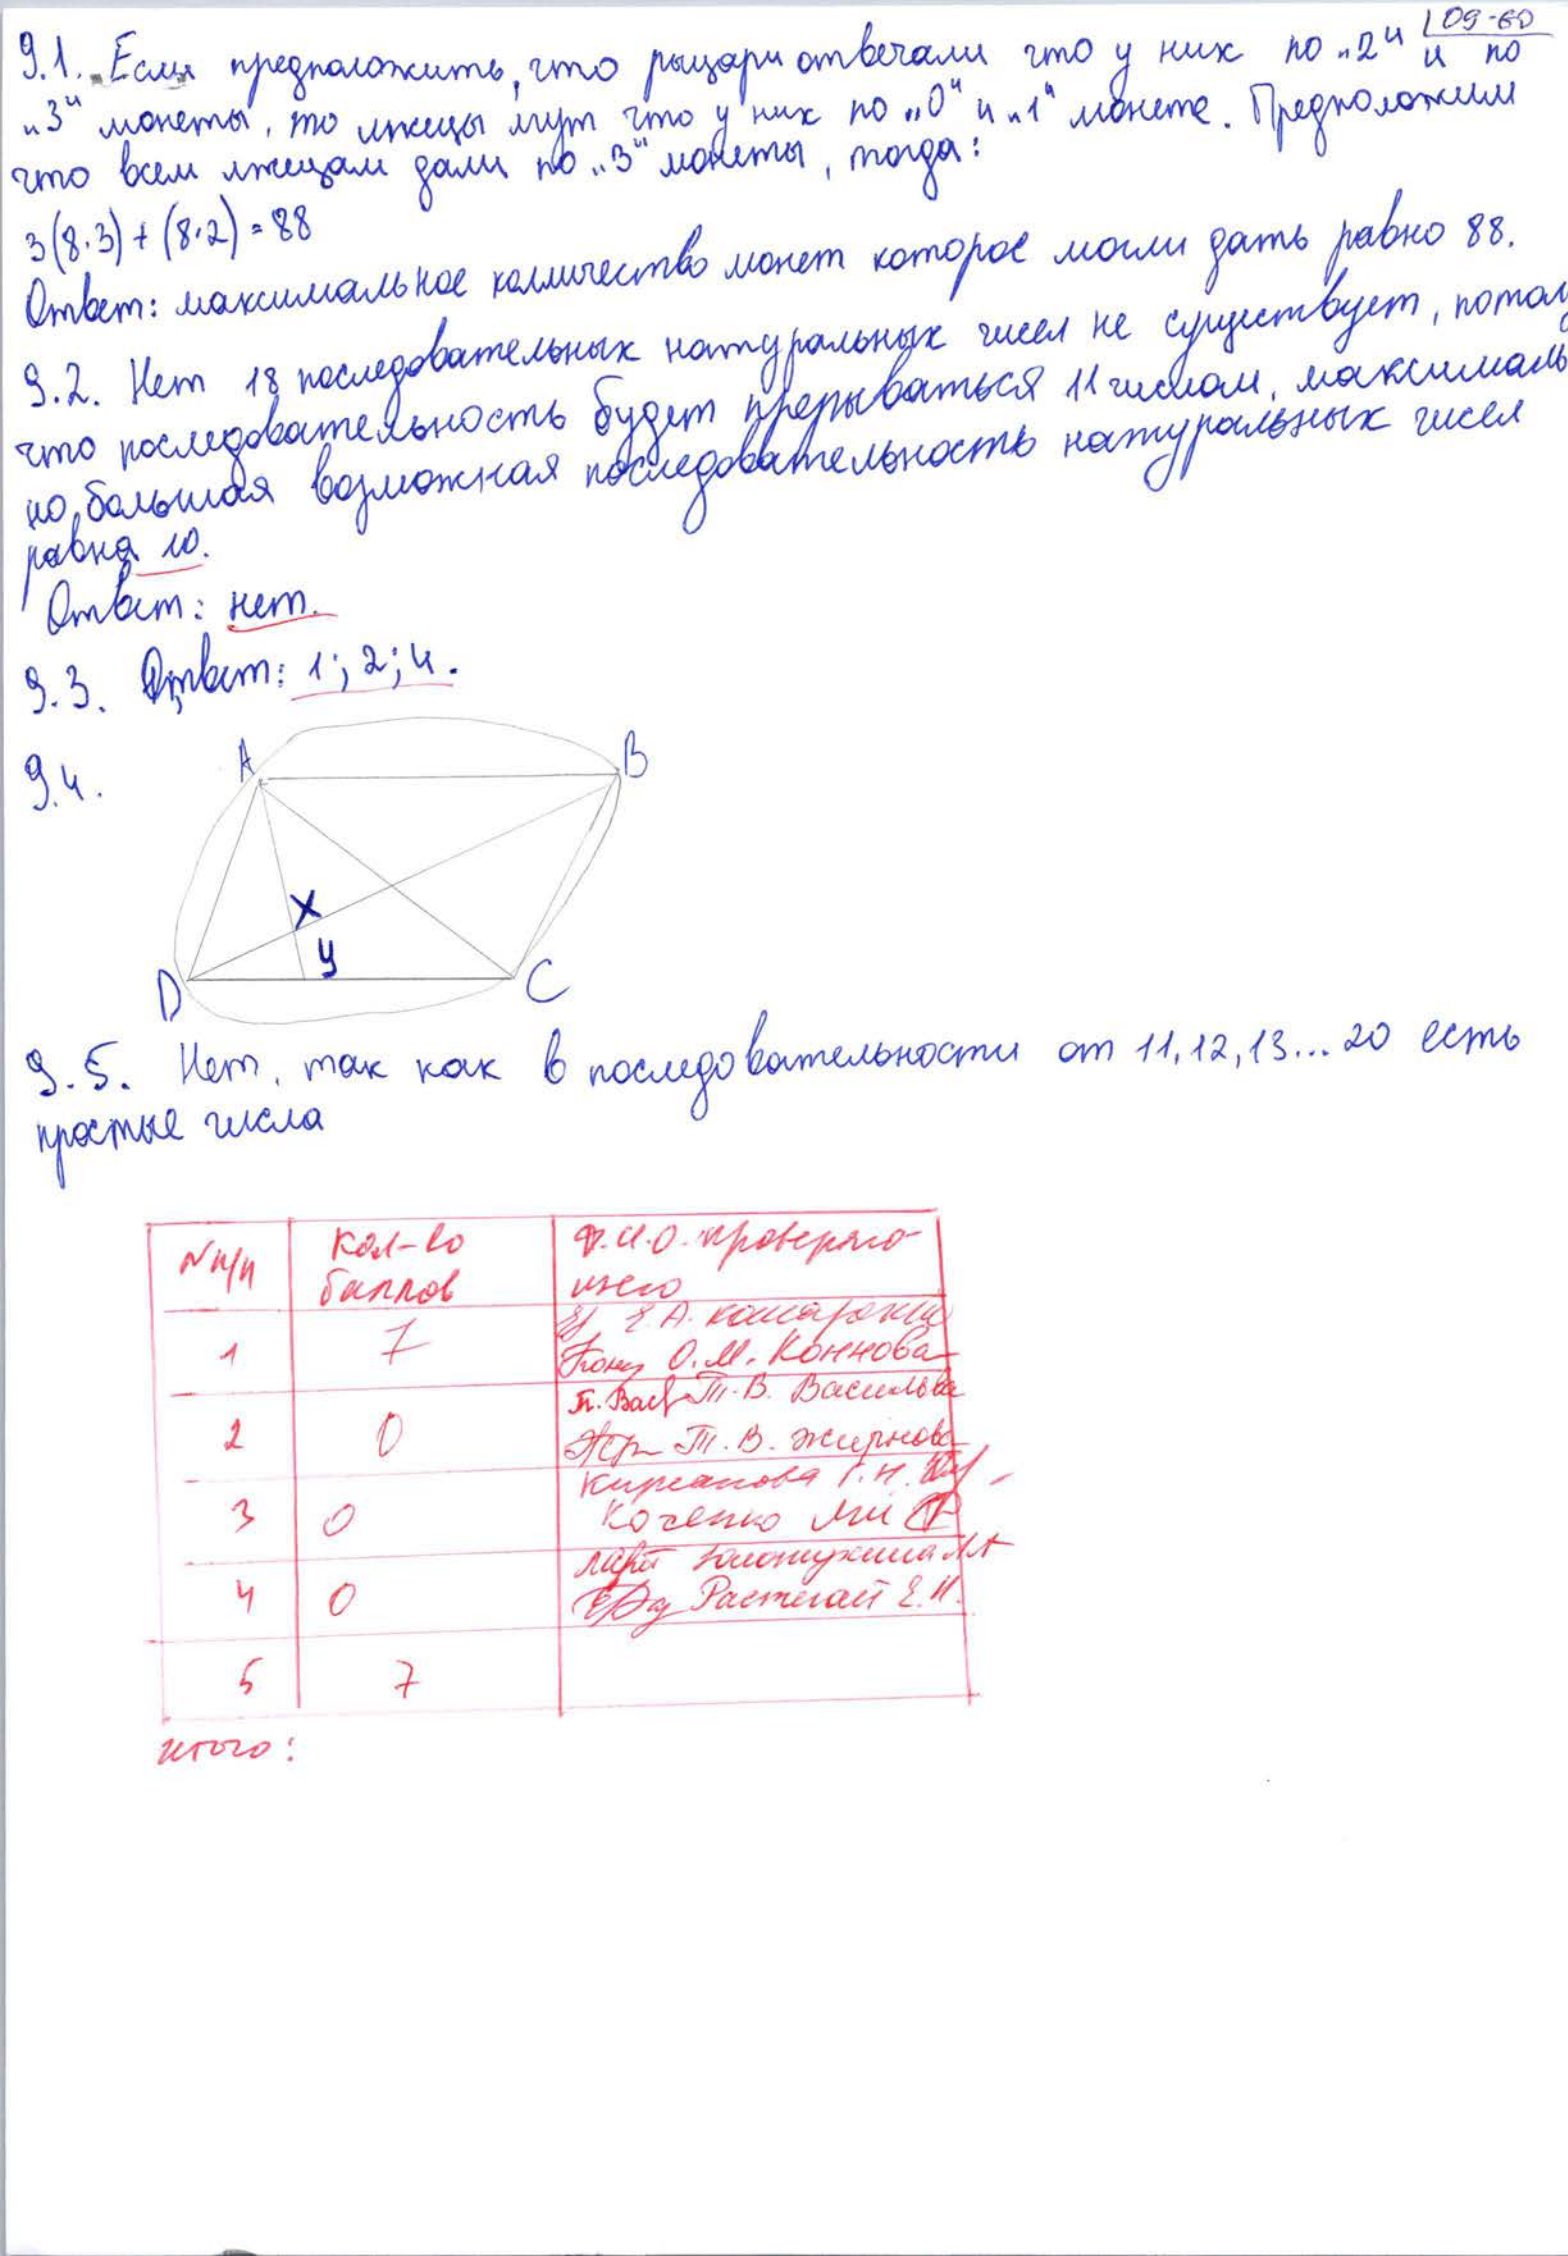 09-60
9.1. Если предположить, что рыцари отвечали что у них по „2“ и по
„3“ монеты, то лжецы лгут что у них по „0“ и „1“ монете. Предположим
что всем лжецам дали по „3“ монеты, тогда:
3(8·3)+(8·2)=88
Ответ: максимальное колличество монет которое могли дать равно 88.
9.2. Нет 18 последовательных натуральных чисел не существует, потому
что последовательность будет прерываться 11 числом, максималь
но большая возможная последовательность натуральных чисел
равна 10.
Ответ: нет.
9.3. Ответ: 1; 2; 4.
9.4.
A B
X
y
D C
9.5. Нет, так как в последовательности от 11,12,13... 20 есть
простые числа
№ п/п Кол-во баллов Ф.И.О. проверяющего
1 7 Е.А.
О.М. Коннова
2 0 Т.В. Васильева
Т.В. Жирнова
3 0
Коченко
4 0
Растегай Е.И.
5 7
итого: